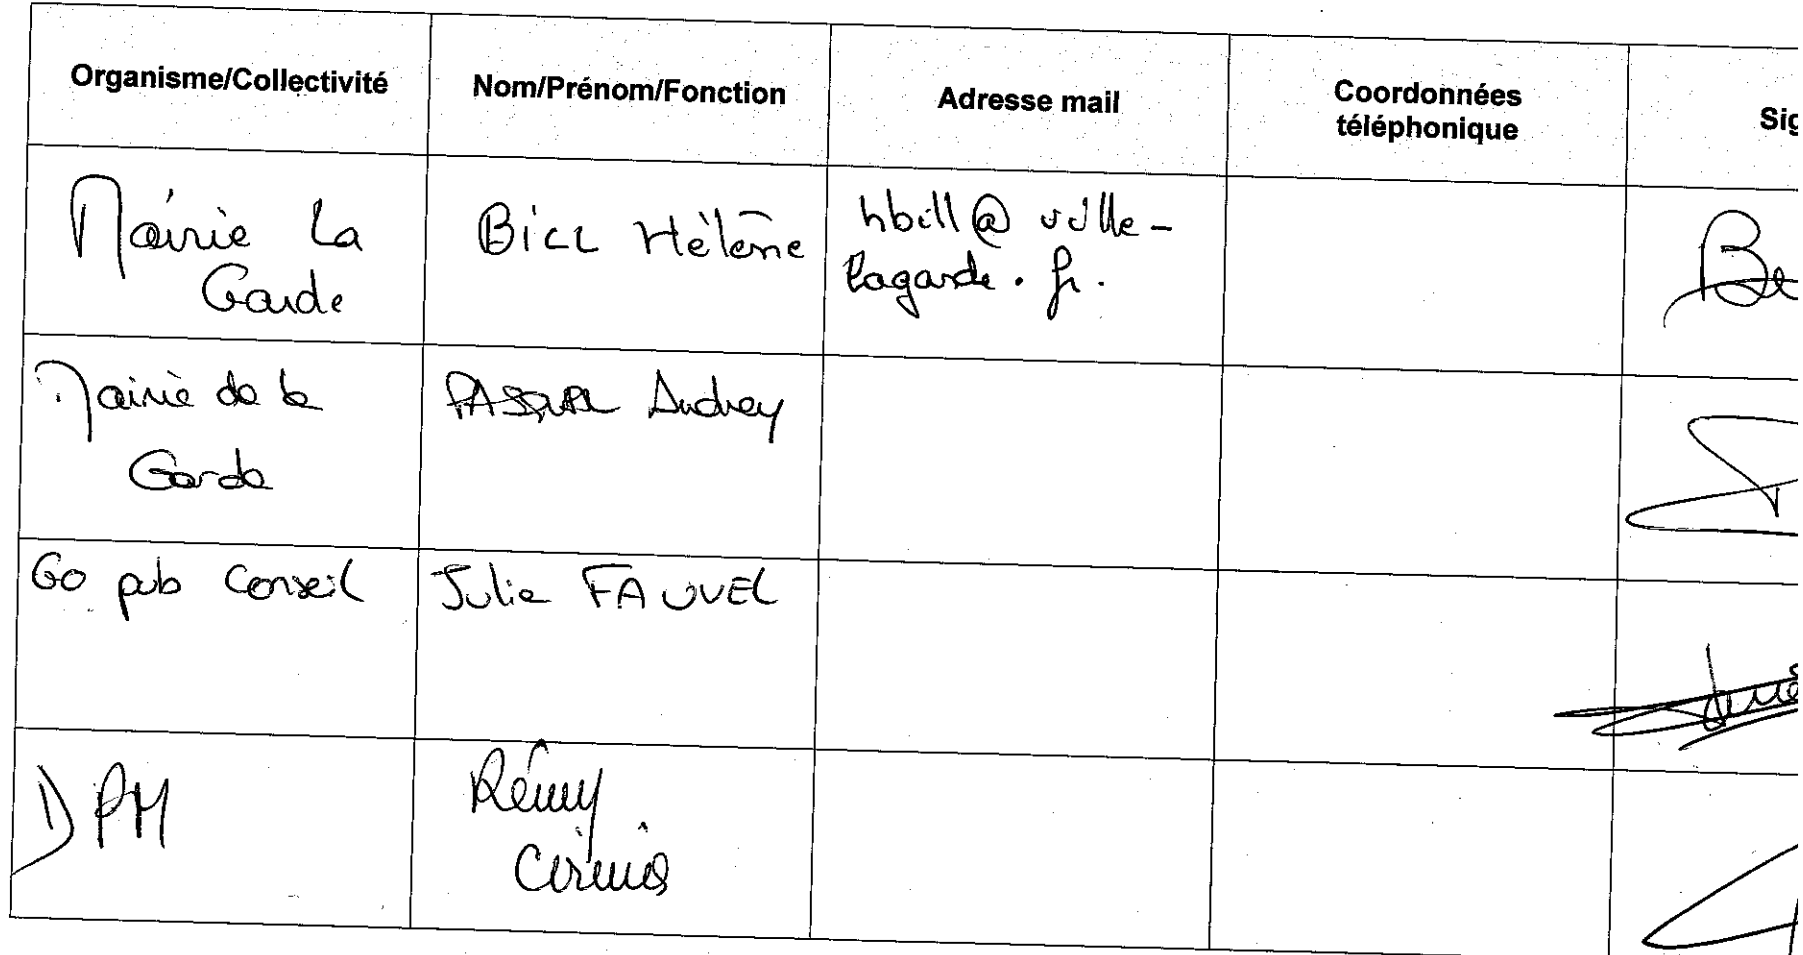 Organisme/Collectivité
Nom/Prénom/Fonction
Adresse mail
Coordonnées
téléphonique
Sig
Mairie La
Garde
Bill Hélène
hbill@ville-
lagarde.fr.
Mairie de la
Garde
Audrey
Go pub Conseil
Julie FAUVEL
DPM
Rémy